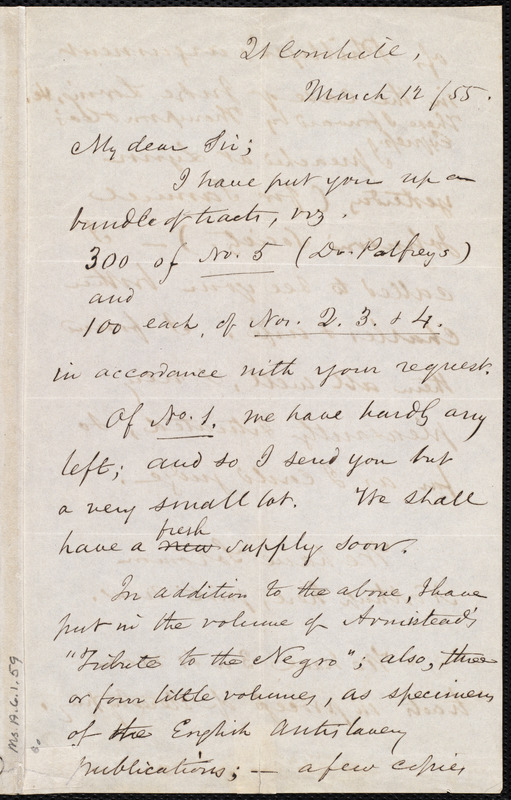 21 Cornhill,
March 12/55.
My dear Sir;
I have put you up a
bundle of tracts, viz.
300 of No. 5 (Dr. Palfreys)
and
100 each, of Nos. 2. 3. & 4.
in accordance with your request.
Of No. 1. we have hardly any
left; and so I send you but
a very small lot. We shall
fresh
have a new supply soon.
In addition to the above, I have
put in the volume of Armistead's
"Tribute to the Negro"; also, three
or four little volumes, as specimens
of the English Antislavery
publications; — a few copies
Ms. A. 6. 1. 59